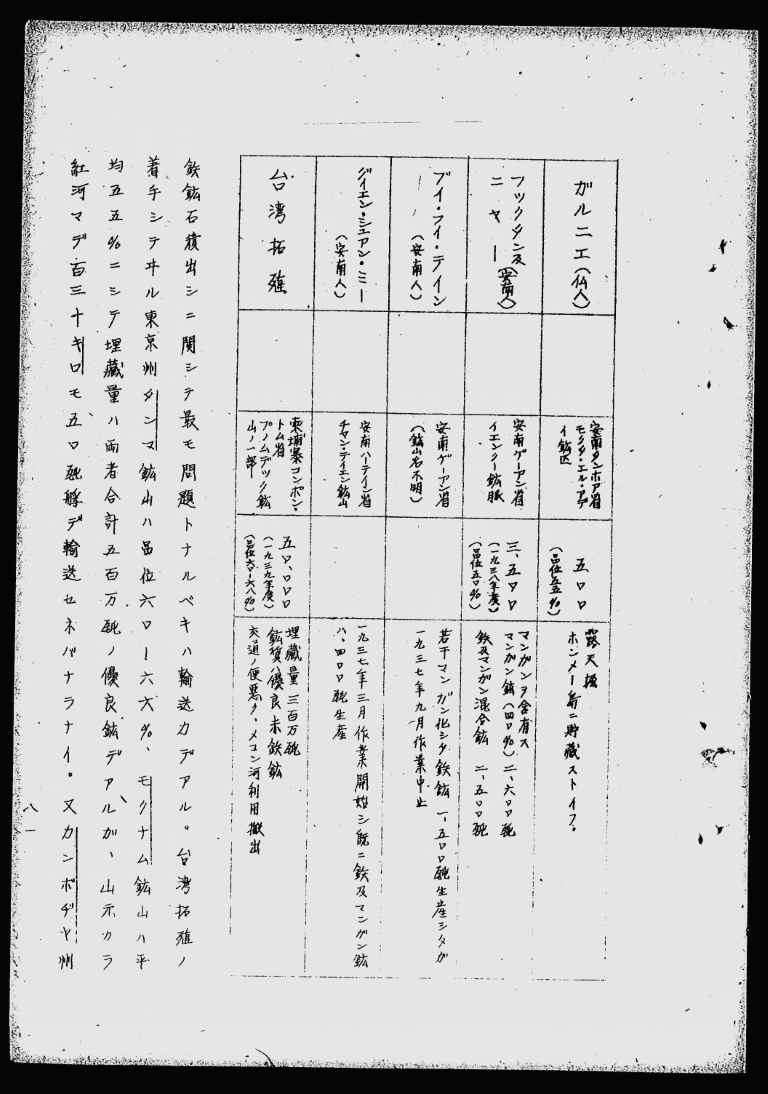 ガルニエ(仏人)
安南タンホア省
モクタ・エル・アデ
イ鉱区
五〇〇
(品位五五%)
露天掘
ホンメー島ニ貯蔵ストイフ。
フックタン及
ニャー(安南人)
安南ゲーアン省
イエンクー鉱脈
三、五〇〇
(一九三八年度)
(品位五〇%)
マンガンヲ含有ス
マンガン鉱(四〇%)二、六〇〇瓲
鉄及マンガン混合鉱 二、五〇〇瓲
ブイ・フイ・テイン
(安南人)
安南ゲーアン省
(鉱山名不明)
若干マンガン化シタ鉄鉱一、五〇〇瓲生産シタガ
一九三七年九月作業中止
グイエン・シェアン・ミー
(安南人)
安南ハーテイン省
チャンテイエン鉱山
一九三七年三月作業開始シ既ニ鉄及マンガン鉱
八、四〇〇瓲生産
台湾拓殖
柬埔寨コンポン・
トム省
プノムデック鉱
山ノ一部
五〇、〇〇〇
(一九三九年度)
(品位六〇ー六八%)
埋蔵量三百万瓲
鉱質ハ優良赤鉄鉱
交通ノ便悪ク、メコン河利用搬出
鉄鉱石積出シニ関シテ最モ問題トナルベキハ輸送力デアル。台湾拓殖ノ
着手シテヰル東京州タンマ鉱山ハ品位六〇ー六六%、モクナム鉱山ハ平
均五五%ニシテ埋蔵量ハ両者合計五百万瓲ノ優良鉱デアルガ、山元カラ
紅河マデ百三十キロモ五〇瓲艀デ輸送セネバナラナイ。又カンボヂヤ州
八一